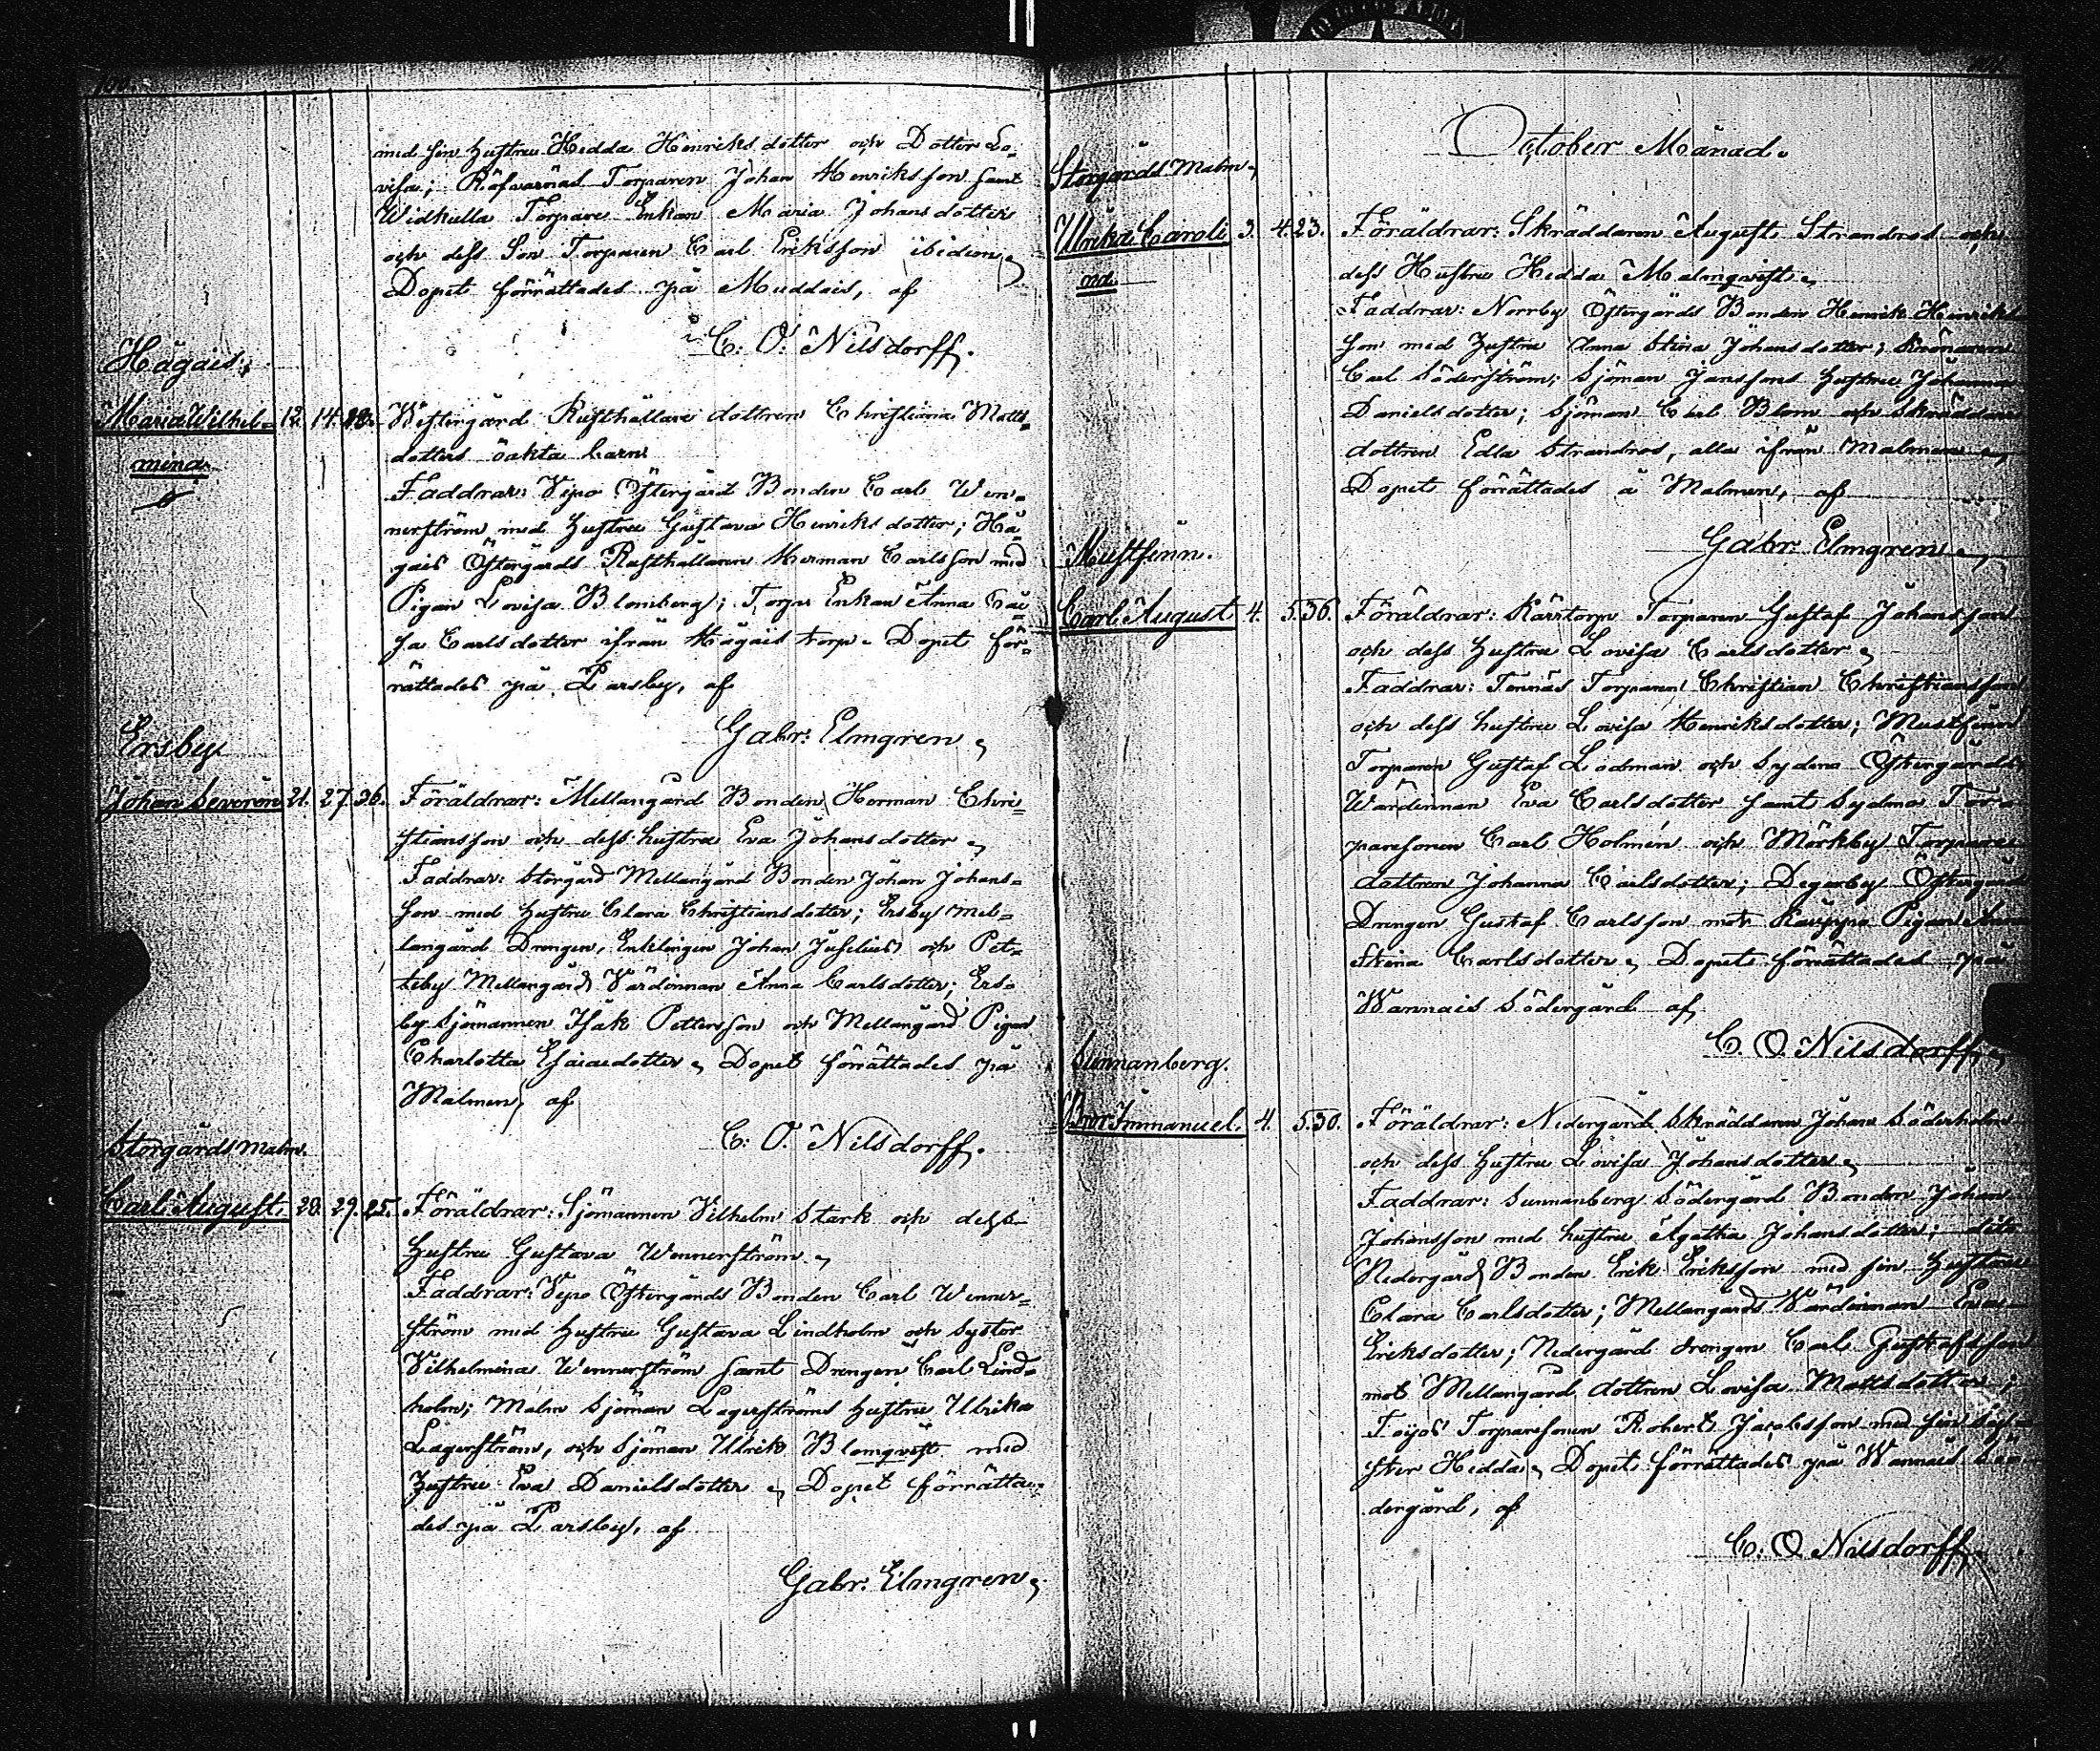 med sin hustru Hedda Henriksdotter och Dotter Lo-
visa; Räfvarnäs Torparen Johan Henriksson samt
Widkulla Torpare Enkan Maria Johansdotter
och dess Son Torparen Carl Eriksson ibidem,
Dopet förrättades på Muddais, af
C. O. Nilsdorff.
Hägais;
Maria Wilhel- 12. 14. Westergård Rusthållare dottren Christiana Matts-
mina dotters oäkta barn
Faddrar: Vepo Östergård Bonden Carl Wen-
nerström med hustru Gustava Henriksdotter; Hä-
gais Östergårds Rusthållaren Herman Carlsson med
Pigan Lovisa Blomberg; Torpe Enkan Anna Cai-
sa Carlsdotter ifrån Hägais torp. Dopet för-
rättades på Parsby, af
Gabr: Elmgren,
Ersby
Johan Severin 21. 27. 36. Föräldrar: Mellangård Bonden Herman Chri-
stiansson och dess hustru Eva Johansdotter,
Faddrar: Storgård Mellangård Bonden Johan Johans-
son med hustru Clara Christiansdotter; Ersby Mel-
langård Drengen, Enklingen Johan Juselius och Pet-
teby Mellangård Värdinnan Anna Carlsdotter; Ers-
by Sjömannen Isak Pettersson och Mellangård Pigan
Charlotta Esaiaedotter, Dopet förrättades på
Malmen, af
C. O. Nilsdorff.
Storgårds Malm.
Carl August. 28. 29. 25. Föräldrar: Sjömannen Vilhelm Stark och dess
hustru Gustava Wennerström,
Faddrar: Vepo Östergårds Bonden Carl Wenner-
ström med hustru Gustava Lindholm och Syster
Vilhelmina Wennerström samt Drengen Carl Lind-
holm; Malm Sjöman Lagerströms hustru Ulrika
Lagerström, och Sjöman Ulrik Blomqvist med
hustru Eva Danielsdotter, Dopet förrätta-
des på Parsby, af
Gabr: Elmgren,
October Månad.
Storgårds Malm,
Ulrika Caroli- 3. 4. 23. Föräldrar: Skräddaren August Strandros och
na. dess Hustru Hedda Malmqvist,
Faddrar: Norrby Östergårds Bonden Henrik Henriks-
son med hustru Anna Stina Johansdotter;
Carl Söderström; Sjöman Janssons hustru Johanna
Danielsdotter; Sjöman Carl Blom och Skräddare
dottren Edla Strandros, alla ifrån Malmen,
Dopet förrättades å Malmen, af
Gabr Elmgren,
Mustfinn.
Carl August. 4. 5. 36. Föräldrar: Kärrtorp Torparen Gustaf Johansson
och dess hustru Lovisa Carlsdotter,
Faddrar: Tennäs Torparen Christian Christiansson
och dess hustru Lovisa Henriksdotter; Mustfinn
Torparen Gustaf Lodman och Sydmo Östergårds
Värdinnan Eva Carlsdotter samt Sydmo Tor-
paresonen Carl Holmén och Mörkby Torpare
dottren Johanna Carlsdotter; Degerby Östergård
Drengen Gustaf Carlsson mot Kauppa Pigan Anna
Stina Carlsdotter, Dopet förrättades på
Wannais Södergård af,
C. O. Nilsdorff,
Sunnanberg.
Bror Immanuel. 4. 5. 30. Föräldrar: Nedergård Skräddaren Johan Söderholm
och dess hustru Lovisa Johansdotter,
Faddrar: Sunnanberg Södergård Bonden Johan
Johansson med hustru Agatha Johansdotter; dito
Nedergård Bonden Erik Eriksson med sin hustru
Clara Carlsdotter; Mellangårds Värdinnan Eva
Eriksdotter; Nedergård drengen Carl Gustafsson
mot Mellangård dottren Lovisa Mattsdotter;
Torparesonen Robert Jacobsson med sin Sy-
ster Hedda, Dopet förrättades på Wannais Sö-
dergård, af
C. O Nilsdorff,